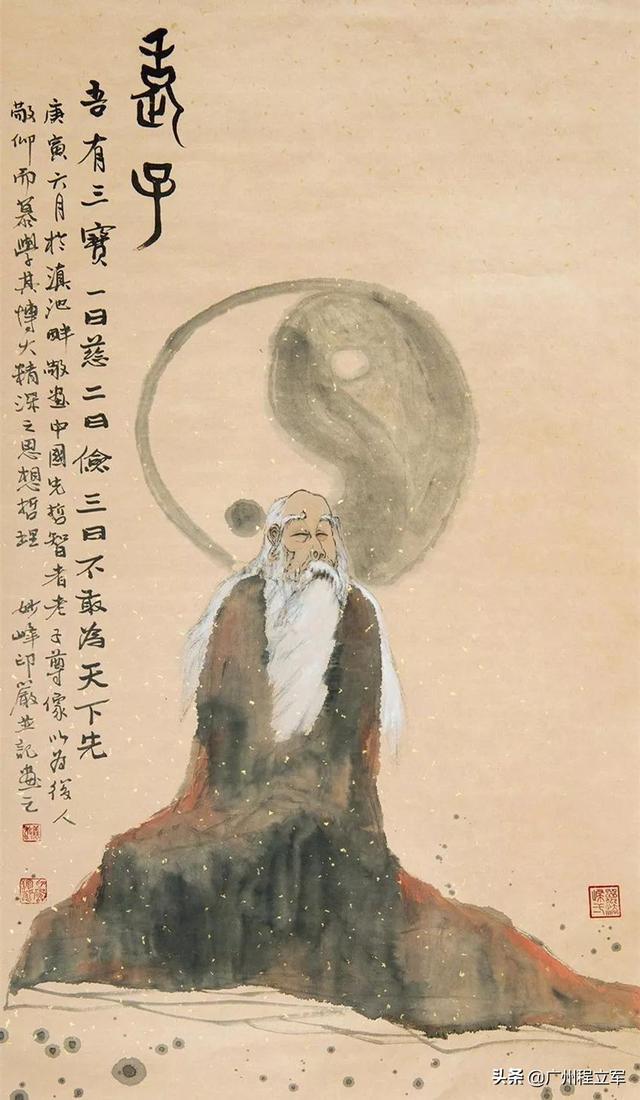 老子
吾有三寶一曰慈二曰儉三曰不敢為天下先
庚寅六月於滇池畔敬畫中國先哲智者老子尊像以為後人
敬仰而慕學其博大精深之思想哲理 妙峰印嚴並記畫之
头条 @广州程立军